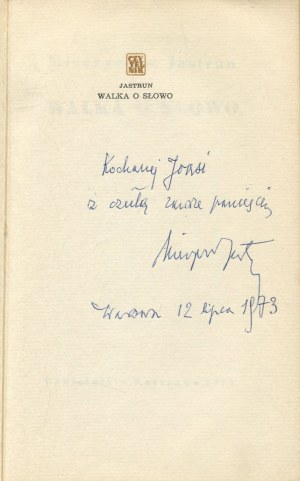 JASTRUN
WALKA O SŁOWO
Kochanej Joasi
z czułą zawsze pamięcią
Mieczysław Jastrun
Warszawa 12 lipca 1973